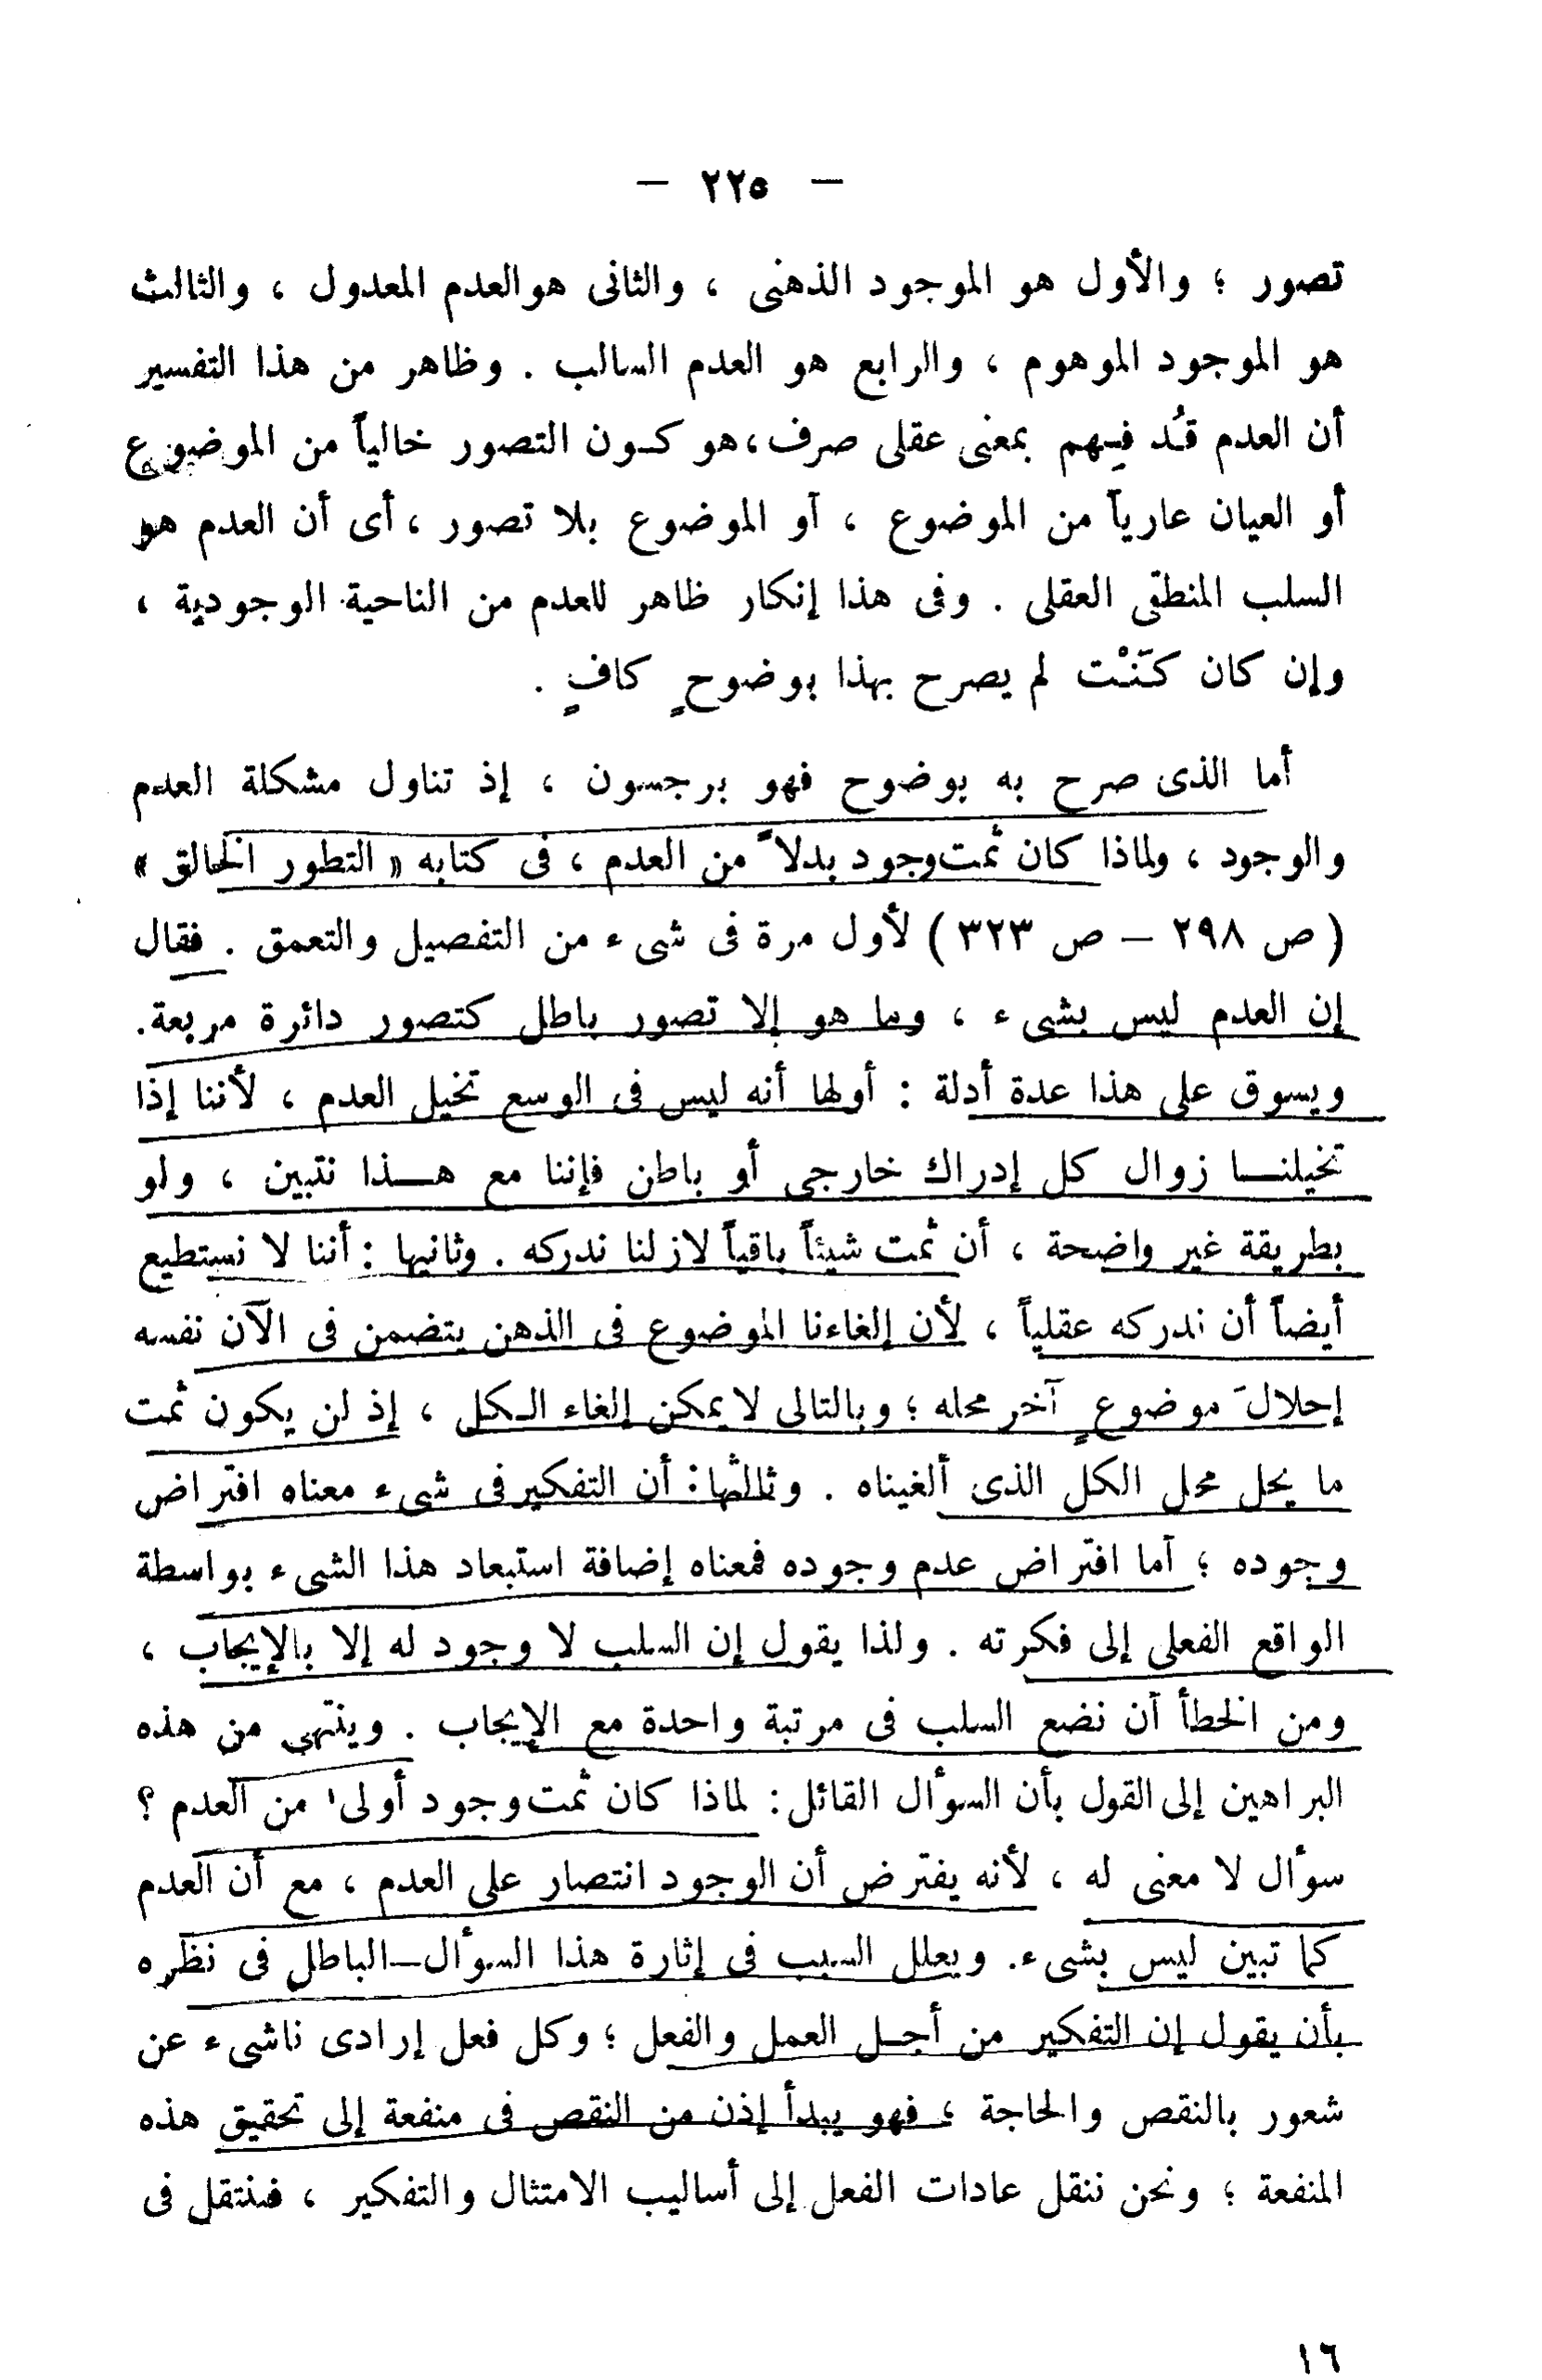 — ٢٢٥ —
تصور ؛ والأول هو الموجود الذهنى ، والثانى هو العدم المعدول ، والثالث
هو الموجود الموهوم ، والرابع هو العدم السالب . وظاهر من هذا التفسير
أن العدم قد فُهِم بمعنى عقلى صرف، هو كـون التصور خالياً من الموضوع
أو العيان عارياً من الموضوع ، أو الموضوع بلا تصور ، أى أن العدم هو
السلب المنطقى العقلى . وفى هذا إنكار ظاهر للعدم من الناحية الوجودية ،
وإن كان كَنْت لم يصرح بهذا بوضوحٍ كافٍ .
أما الذى صرح به بوضوح فهو برجسون ، إذ تناول مشكلة العدم
والوجود ، ولماذا كان ثمت وجود بدلاً من العدم ، فى كتابه « التطور الخالق »
( ص ٢٩٨ — ص ٣٢٣ ) لأول مرة فى شىء من التفصيل والتعمق . فقال
إن العدم ليس بشىء ، وما هو إلا تصور باطل كتصور دائرة مربعة.
ويسوق على هذا عدة أدلة : أولها أنه ليس فى الوسع تخيل العدم ، لأننا إذا
تخيلنـــا زوال كل إدراك خارجى أو باطن فإننا مع هـــذا نتبين ، ولو
بطريقة غير واضحة ، أن ثمت شيئاً باقياً لازلنا ندركه . وثانيها : أننا لا نستطيع
أيضاً أن ندركه عقلياً ، لأن إلغاءنا الموضوع فى الذهن يتضمن فى الآن نفسه
إحلالَ موضوعٍ آخر محله ؛ وبالتالى لا يمكن إلغاء الـكل ، إذ لن يكون ثمت
ما يحل محل الكل الذى ألغيناه . وثالثها: أن التفكير فى شىء معناه افتراض
وجوده ؛ أما افتراض عدم وجوده فمعناه إضافة استبعاد هذا الشىء بواسطة
الواقع الفعلى إلى فكرته . ولذا يقول إن السلب لا وجود له إلا بالإيجاب ،
ومن الخطأ أن نضع السلب فى مرتبة واحدة مع الإيجاب . وينتهى من هذه
البراهين إلى القول بأن السؤال القائل: لماذا كان ثمت وجود أولى من العدم ؟
سؤال لا معنى له ، لأنه يفترض أن الوجود انتصار على العدم ، مع أن العدم
كما تبين ليس بشىء. ويعلل السبب فى إثارة هذا السؤال—الباطل فى نظره
بأن يقول إن التفكير من أجـل العمل والفعل ؛ وكل فعل إرادى ناشىء عن
شعور بالنقص والحاجة ؛ فهو يبدأ إذن من النقص فى منفعة إلى تحقيق هذه
المنفعة ؛ ونحن ننقل عادات الفعل إلى أساليب الامتثال والتفكير ، فننتقل فى
١٦